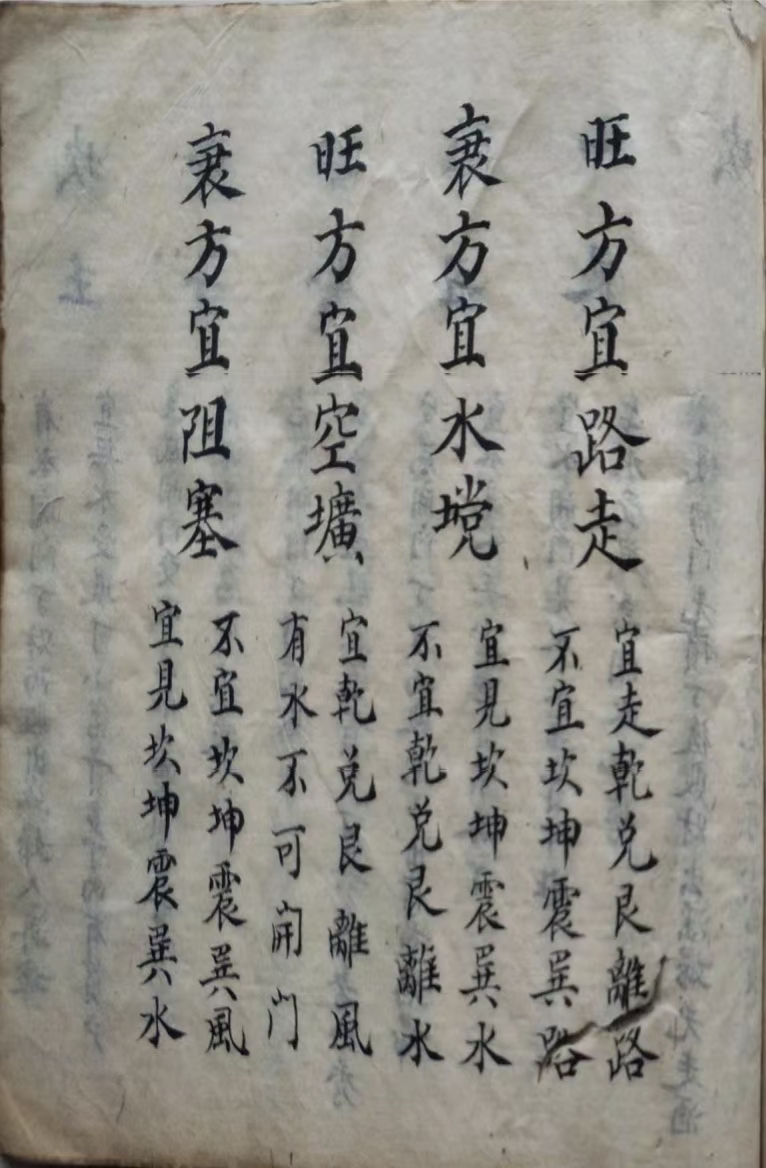 旺方宜路走
宜走乾兑艮離路
不宜坎坤震巽路
衰方宜水塘
宜見坎坤震巽水
不宜乾兑艮離水
旺方宜空壙
宜乾兑艮離風
有水不可開门
衰方宜阻塞
不宜坎坤震巽風
宜見坎坤震巽水